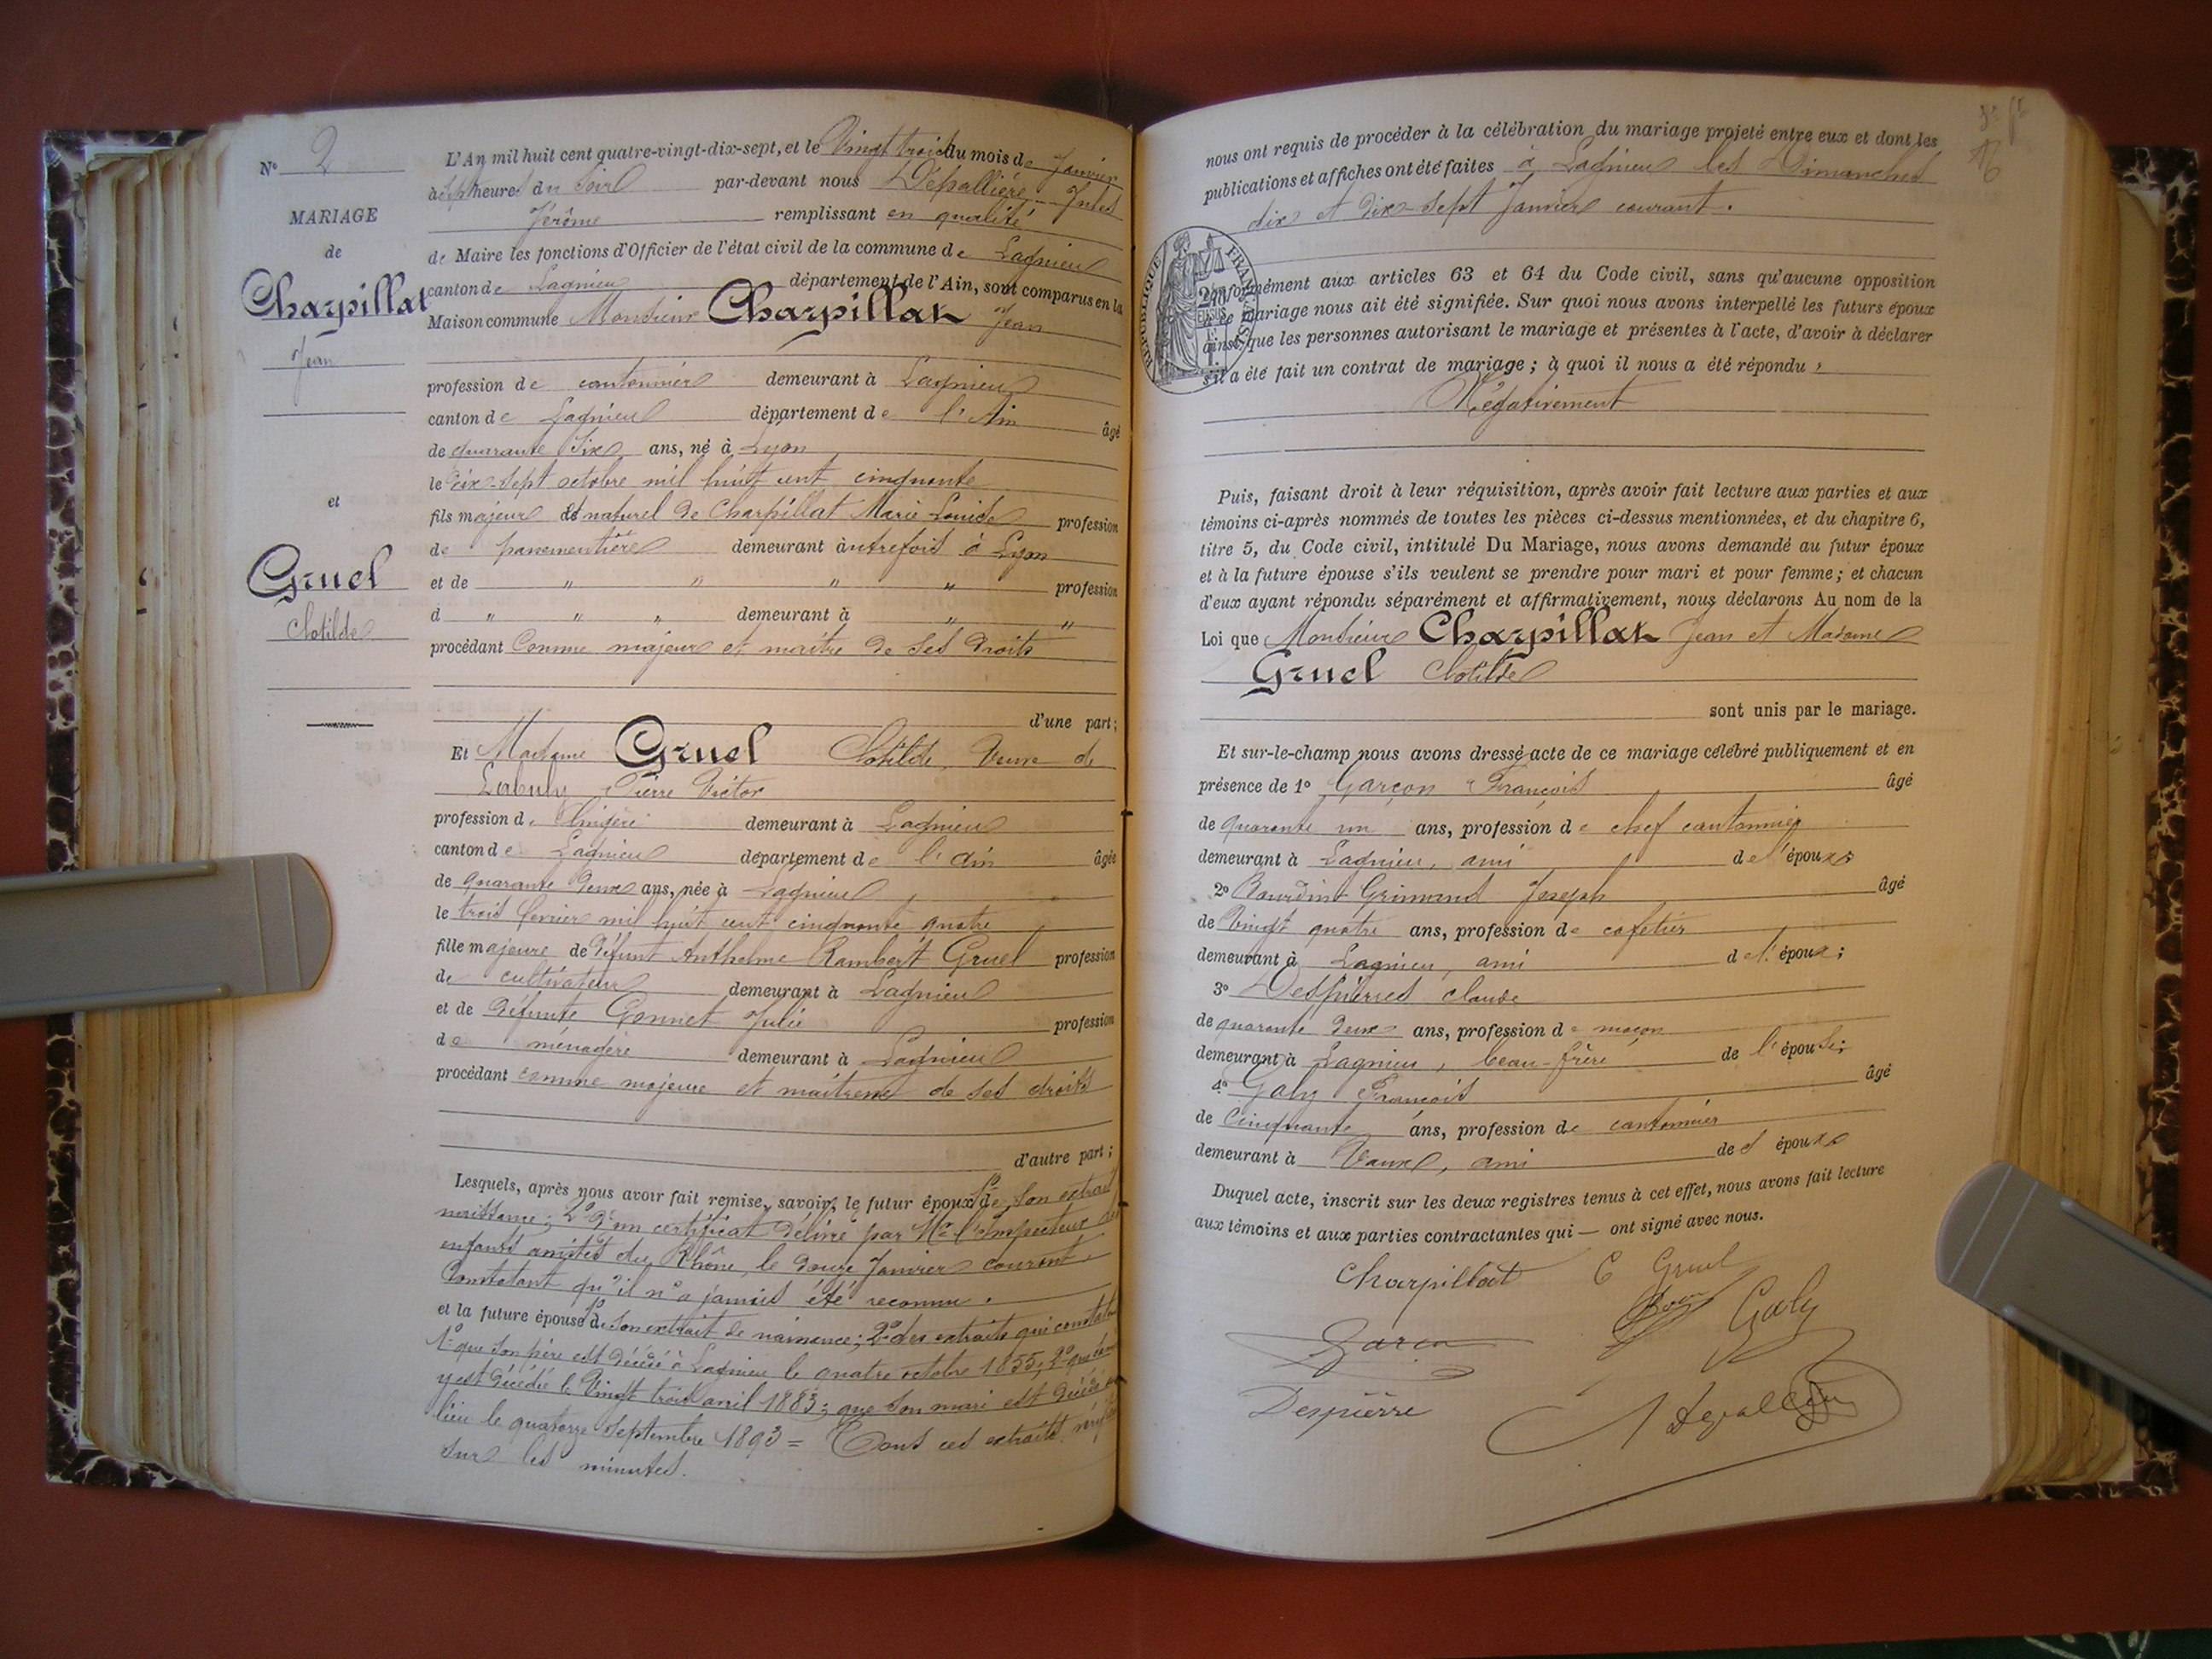 N° 2
MARIAGE
de
Charpillat
Jean
et
Gruel
Clotilde
L'An mil huit cent quatre-vingt-dix-sept, et le Vingt trois du mois de Janvier
à sept heures du soir par-devant nous Dépallière Jules
Jérôme remplissant en qualité
de Maire les fonctions d'Officier de l'état civil de la commune de Lagnieu
canton de Lagnieu département de l'Ain, sont comparus en la
Maison commune Monsieur Charpillat Jean
profession de cantonnier demeurant à Lagnieu
canton de Lagnieu département de l'Ain âgé
de quarante six ans, né à Lyon
le dix-sept octobre mil huit cent cinquante
fils majeur et naturel de Charpillat Marie Louise profession
de passementière demeurant à autrefois à Lyon
et de " " " " profession
d " " " demeurant à " "
procédant Comme majeur et maître de ses droits
d'une part ;
Et Madame Gruel Clotilde, Veuve de
Labuly Pierre Victor
profession de lingère demeurant à Lagnieu
canton de Lagnieu département de l'Ain âgée
de quarante deux ans, née à Lagnieu
le trois février mil huit cent cinquante quatre
fille majeure de défunt Anthelme Rambert Gruel profession
de cultivateur demeurant à Lagnieu
et de défunte Gonnet Julie profession
de ménagère demeurant à Lagnieu
procédant comme majeure et maîtresse de ses droits
d'autre part ;
Lesquels, après nous avoir fait remise, savoir, le futur époux 1° de son extrait
naissance ; 2° d'un certificat délivré par Mr l'Inspecteur des
enfants assistés du Rhône, le douze Janvier courant
Constatant qu'il n'a jamais été reconnu.
et la future épouse 1° de son extrait de naissance ; 2° des extraits qui constatent
1° que son père est décédé à Lagnieu le quatre octobre 1855 ; 2° que
y est décédée le Vingt trois avril 1883 ; que son mari est décédé
lieu le quatorze septembre 1893 = Tous ces extraits
sur les minutes.
nous ont requis de procéder à la célébration du mariage projeté entre eux et dont les
publications et affiches ont été faites à Lagnieu les Dimanches
dix et dix-sept Janvier courant.
RÉPUBLIQUE FRANÇAISE
conformément aux articles 63 et 64 du Code civil, sans qu'aucune opposition
à ce mariage nous ait été signifiée. Sur quoi nous avons interpellé les futurs époux
ainsi que les personnes autorisant le mariage et présentes à l'acte, d'avoir à déclarer
s'il a été fait un contrat de mariage ; à quoi il nous a été répondu :
Négativement
Puis, faisant droit à leur réquisition, après avoir fait lecture aux parties et aux
témoins ci-après nommés de toutes les pièces ci-dessus mentionnées, et du chapitre 6,
titre 5, du Code civil, intitulé Du Mariage, nous avons demandé au futur époux
et à la future épouse s'ils veulent se prendre pour mari et pour femme ; et chacun
d'eux ayant répondu séparément et affirmativement, nous déclarons Au nom de la
Loi que Monsieur Charpillat Jean et Madame
Gruel Clotilde
sont unis par le mariage.
Et sur-le-champ nous avons dressé acte de ce mariage célébré publiquement et en
présence de 1° Garçon François âgé
de quarante un ans, profession de chef cantonnier
demeurant à Lagnieu, ami de l'époux ;
2° Bourdin Grimand Joseph âgé
de Vingt quatre ans, profession de cafetier
demeurant à Lagnieu, ami de l'époux ;
3° Despierres Claude
de quarante deux ans, profession de maçon
demeurant à Lagnieu, beau-frère de l'épouse ;
4° Galy François âgé
de Cinquante ans, profession de cantonnier
demeurant à Vaux, ami de l'époux
Duquel acte, inscrit sur les deux registres tenus à cet effet, nous avons fait lecture
aux témoins et aux parties contractantes qui — ont signé avec nous.
Charpillat C Gruel
Garcon Galy
Despierre